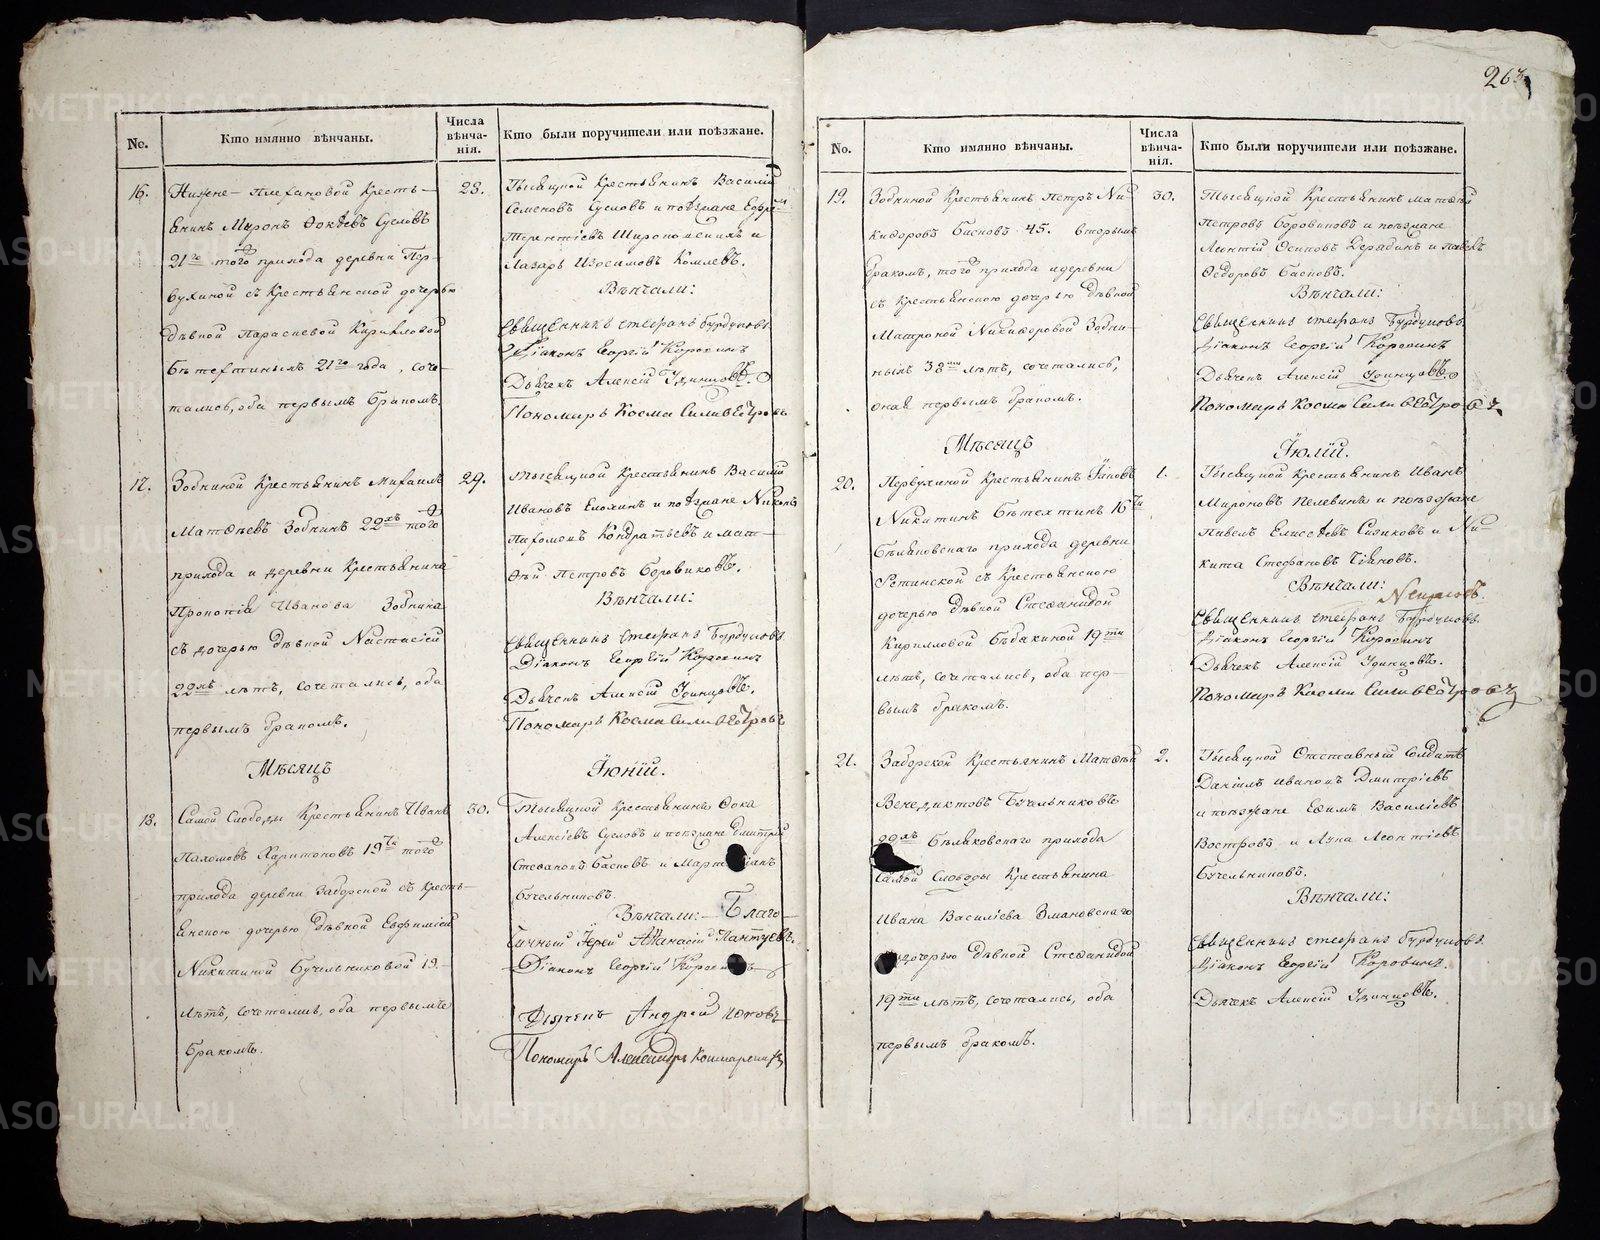 263
No.
Кто имянно вѣнчаны.
Числа вѣнча-нія.
Кто были поручители или поѣзжане.
16.
Нижне-Плехановой Кресть-
янинъ Миронъ Фокѣевъ Сусловъ
21го того прихода деревни Пер-
вухиной съ Крестьянской дочерью
дѣвкой Параскевой Кириловой
21го года, соче-
тались, оба первымъ бракомъ.
28.
Тысяцкой Крестьянинъ Василій
Семеновъ Сусловъ и поѣзжане
Терентіевъ и
Лазарь Комлевъ.
Вѣнчали:
Священникъ Стефанъ Бурдуковъ.
Діаконъ Георгій Коровинъ
Дьячекъ Алексій Удинцовъ.
Пономарь Косма Силивестровъ
17.
Зобниной Крестьянинъ Михаилъ
Матѳѣевъ Зобнинъ 22хъ того
прихода и деревни Крестьянина
Прокопія Иванова Зобнина
съ дочерью дѣвкой Настасіей
22хъ лѣтъ, сочетались, оба
первымъ бракомъ.
29.
Тысяцкой Крестьянинъ Василій
Ивановъ и поѣзжане
Кондратьевъ и Мат-
ѳѣй Петровъ Боровиковъ.
Вѣнчали:
Священникъ Стефанъ Бурдуковъ.
Діаконъ Георгій Коровинъ
Дьячекъ Алексій Удинцовъ.
Пономарь Косма Силивестровъ
Мѣсяцъ
Іюній.
18.
Самой Слободы Крестьянинъ Иванъ
Харитоновъ 19ти того
прихода деревни Заборской съ Кресть-
янскою дочерью дѣвкой Евфиміей
Никитиной Бучельниковой 19
лѣтъ, сочетались, оба первымъ
бракомъ.
30.
Тысяцкой Крестьянинъ Фока
Алексіевъ Сусловъ и поѣзжане Дмитрій
Стефановъ Басковъ и
Бучельниковъ.
Вѣнчали: Благо-
чинный Іерей Аѳанасій
Діаконъ Георгій
Дьячекъ Андрей
Пономарь Александръ
No.
Кто имянно вѣнчаны.
Числа вѣнча-нія.
Кто были поручители или поѣзжане.
19.
Зобниной Крестьянинъ Петръ Ни-
кифоровъ Басковъ 45. вторымъ
бракомъ, того прихода и деревни
съ Крестьянскою дочерью дѣвкой
Матроной Никифоровой Зобни-
ныхъ 38ми лѣтъ, сочетались,
оная первымъ бракомъ.
30.
Тысяцкой Крестьянинъ Матѳѣй
Петровъ Боровиковъ и поѣзжане
Леонтій Осиповъ и Павелъ
Федоровъ Басковъ.
Вѣнчали:
Священникъ Стефанъ Бурдуковъ.
Діаконъ Георгій Коровинъ
Дьячекъ Алексій Удинцовъ.
Пономарь Косма Силивестровъ
Мѣсяцъ
Іюлій.
20.
Первухиной Крестьянинъ Іаковъ
Никитинъ Бѣтехтинъ 16ти
Бѣляковскаго прихода деревни
Ретинской съ Крестьянскою
дочерью дѣвкой Стефанидой
Кирилловой 19ти
лѣтъ, сочетались, оба пер-
вымъ бракомъ.
1.
Тысяцкой Крестьянинъ Иванъ
Мироновъ Пелевинъ и поѣзжане
Павелъ Елисѣевъ и Ни-
кита Стефановъ
Вѣнчали:
Священникъ Стефанъ Бурдуковъ.
Діаконъ Георгій Коровинъ
Дьячекъ Алексій Удинцовъ.
Пономарь Косма Силивестровъ
21.
Заборской Крестьянинъ Матѳѣй
Венедиктовъ Бучельниковъ
22хъ Бѣляковскаго прихода
самой Слободы Крестьянина
Ивана Василіева
дочерью дѣвкой Стефанидой
19ти лѣтъ, сочетались, оба
первымъ бракомъ.
2.
Тысяцкой Отставный Солдатъ
Даніилъ Дмитріевъ
и поѣзжане Ефимъ Василіевъ
Востровъ и Леонтіевъ
Бучельниковъ.
Вѣнчали:
Священникъ Стефанъ Бурдуковъ.
Діаконъ Георгій Коровинъ.
Дьячекъ Алексій Удинцовъ.